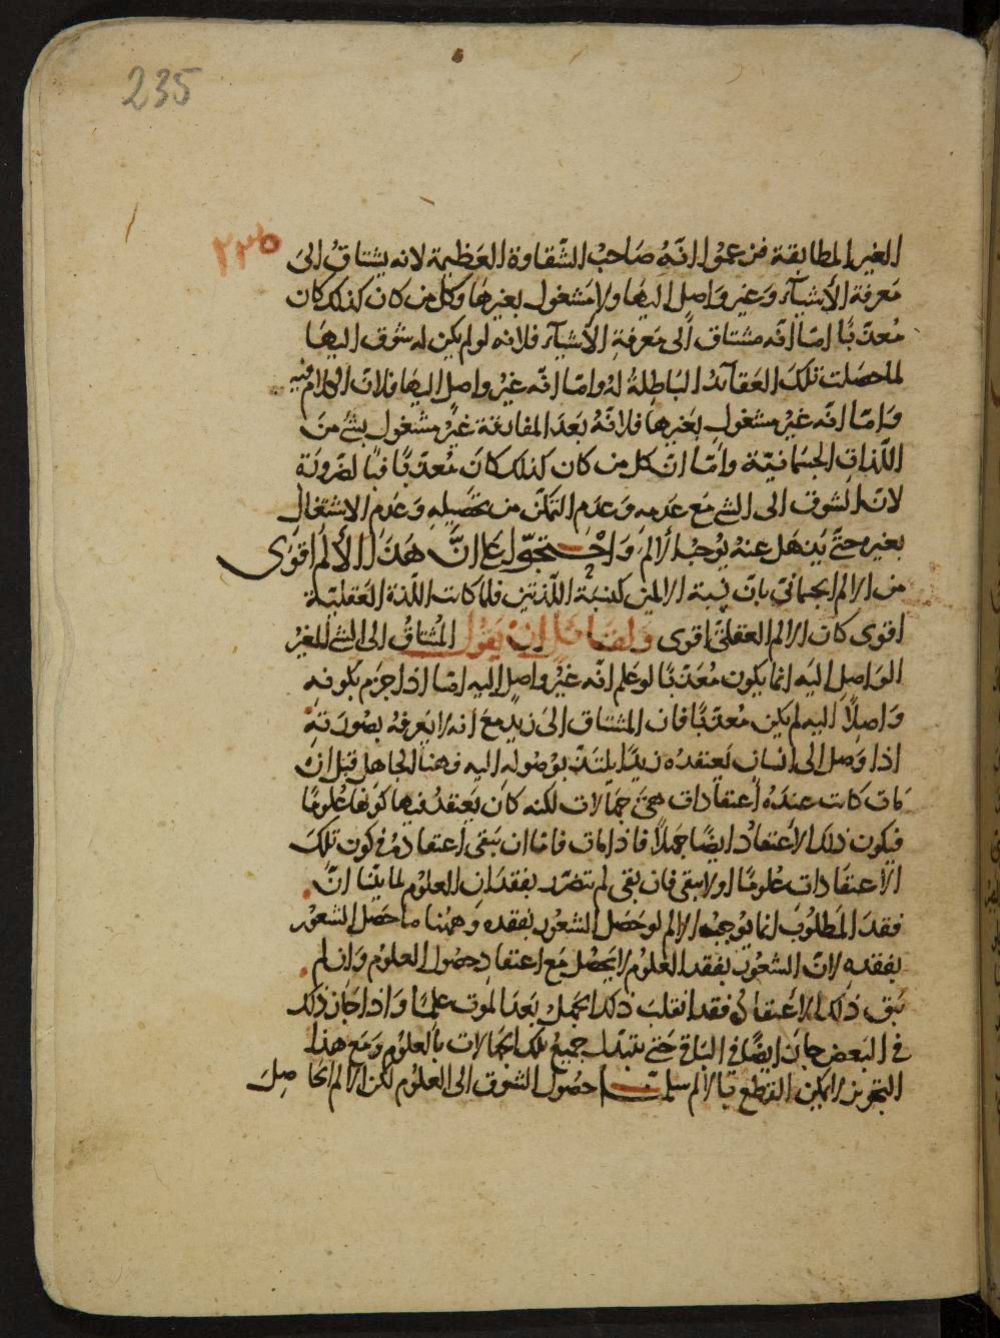 235
٢٣٥
الغير المطابقة فزعموا انّهُ صَاحبُ الشّقاوة العَظيمة لانه يشتاقُ الىَ
مَعرفة الأشيآء وَغير وَاصلٍ اليهَا ولا مَشغول بغيرهَا وكل من كان كذلك كان
مُعذّبًا امّا انّه مشتاق الى مَعرفةِ الأشيآء فلانه لو لم يكن له شوق اليهَا
لما حصَلت تلكَ العَقآئد البَاطِلةُ لهُ وامّا انّه غيرُ واصلٍ اليهَا فلانّ الكلام فيه
وَامّا انّه غيرُ مشغول بغيرهَا فلانّهُ بعَد المفارقة غيرُ مشغول بشئٍ منَ
اللّذات الجسمَانيّة وأمّا انّ كل من كان كذلك كانَ مُعذّبًا فبالضرورَة
لانّ الشوق الى الشئ مَع عَدمه وَعدَم التمكّن من تحصيلهِ وَعدَمِ الاشتغال
بغيره حتّىَ يَذهل عنهُ يوُجبُ الالمَ وَاحْتجّوا علَى انَّ هَذَا الألمَ اقوَى
من الالم الجسمانىّ بانّ نِسبة الالمين كنسبَة اللّذتين فلمّا كانت اللّذة العَقليّة
اقوى كان الالم العقلىّ اقوى وَلقَائلٍ انْ يَقوُل المُشتاقُ الى الشئ الغير
الوَاصلِ اليَه انما يكون مُعَذّبًا لوعَلم انّه غيرُ واصلٍ اليه امّا اذا جزَم بكونهِ
وَاصِلاً اليه لم يكن مُعذّبًا فان المشتاق الىَ زيدٍ معَ انه لا يَعرفهُ بصُورَتهِ
اذا وَصل الى انسانٍ يَعتقدُه زيدًا يلتذّ بوُصُوله اليه وَهنا الجاهل قبل ان
مات كانت عندَهُ اعتقادات هىَ جهَالات لكنه كانَ يَعتقدُ فيها كونَها عُلومًا
فيكون ذلك الاعتقادُ ايضًا جهلاً فاذا مات فامّا ان يَبقى اعتقادهُ فى كون تلكَ
الاعتقادات عُلومًا او لا يبقى فان بقى لم يتضرّر بفقدَان العلوُم لما بيّنا انّ
فقدَ المَطلوُب انما يوُجبُ الالم لو حَصَل الشعوُر بفقدِه وَههُنا ما حصَل الشعوُر
بفقدهِ لانّ الشعوُر بفقد العُلوُم لا يحصُل مَع اعتقادِ حصُول العلوُم وَان لم
يَبق ذلك الاعتقادُ فقد انقلبَ ذلك الجَهل بَعدَ المَوت علمًا وَاذا جَاز ذلك
فى البَعض جازَ ايضًا فى البَاقى حَتّى يتبَدّل جميعُ تلك الجَهالات بالعلوُم وَمَع هذا
التجويز لا يمكن القطع بالالم سلمنَا حصُول الشوق الى العلوُم لكن الالم الحَاصِلَ